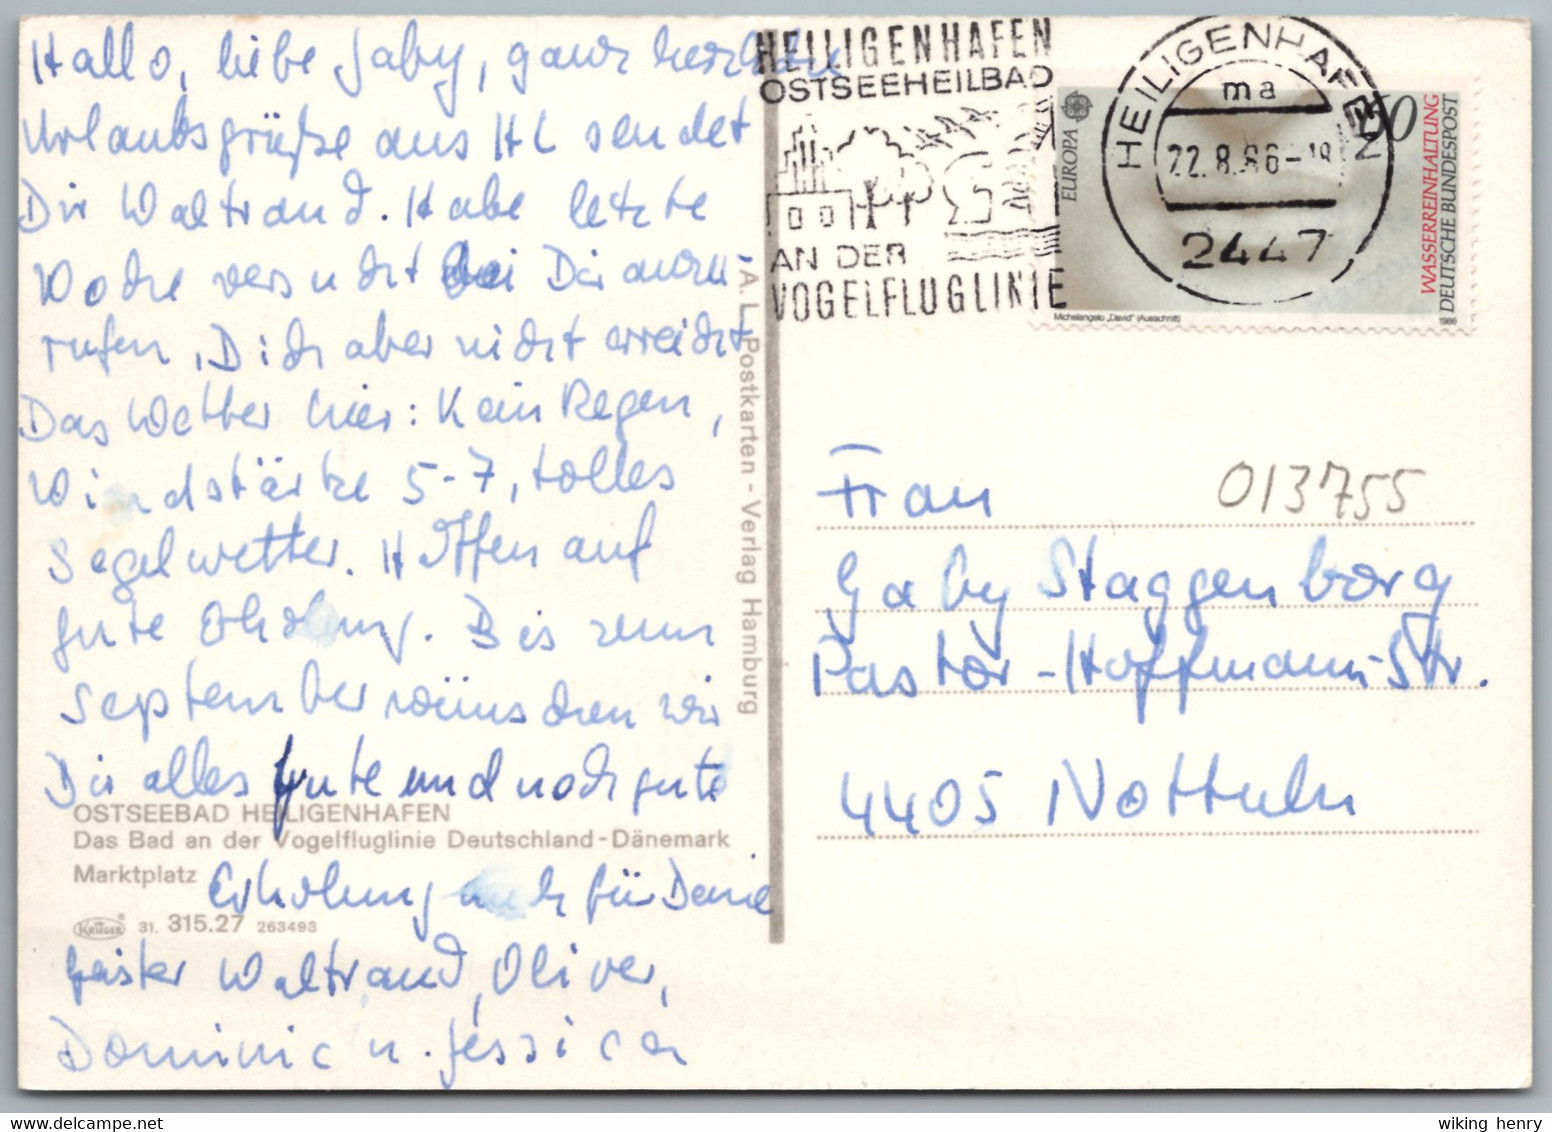 Hallo, liebe Gaby, ganz herzlichen
Urlaubsgrüße aus HH sendet
Dir Waltraud. Habe letzte
Woche versucht bei Dir anzu
rufen, Dich aber nicht erreicht
Das Wetter hier: Kein Regen,
Windstärke 5-7, tolles
Segelwetter. Hoffen auf
gute Erholung. Bis zum
September wünschen wir
Dir alles gute und noch gute
OSTSEEBAD HEILIGENHAFEN
Das Bad an der Vogelfluglinie Deutschland-Dänemark
Marktplatz
Erholung auch für Deine
KRÜGER 31. 315.27 263493
Geister Waltraud, Oliver,
Dominic u. Jessica
A. L. Postkarten-Verlag Hamburg
HEILIGENHAFEN
OSTSEEHEILBAD
AN DER
VOGELFLUGLINIE
HEILIGENHAFEN
ma
22.8.86-18
2447
EUROPA
50
WASSERREINHALTUNG
DEUTSCHE BUNDESPOST
Michelangelo „David" (Ausschnitt)
1986
013755
Frau
Gaby Staggenborg
Pastor-Hoffmann-Str.
4405 Nottuln
wiking henry